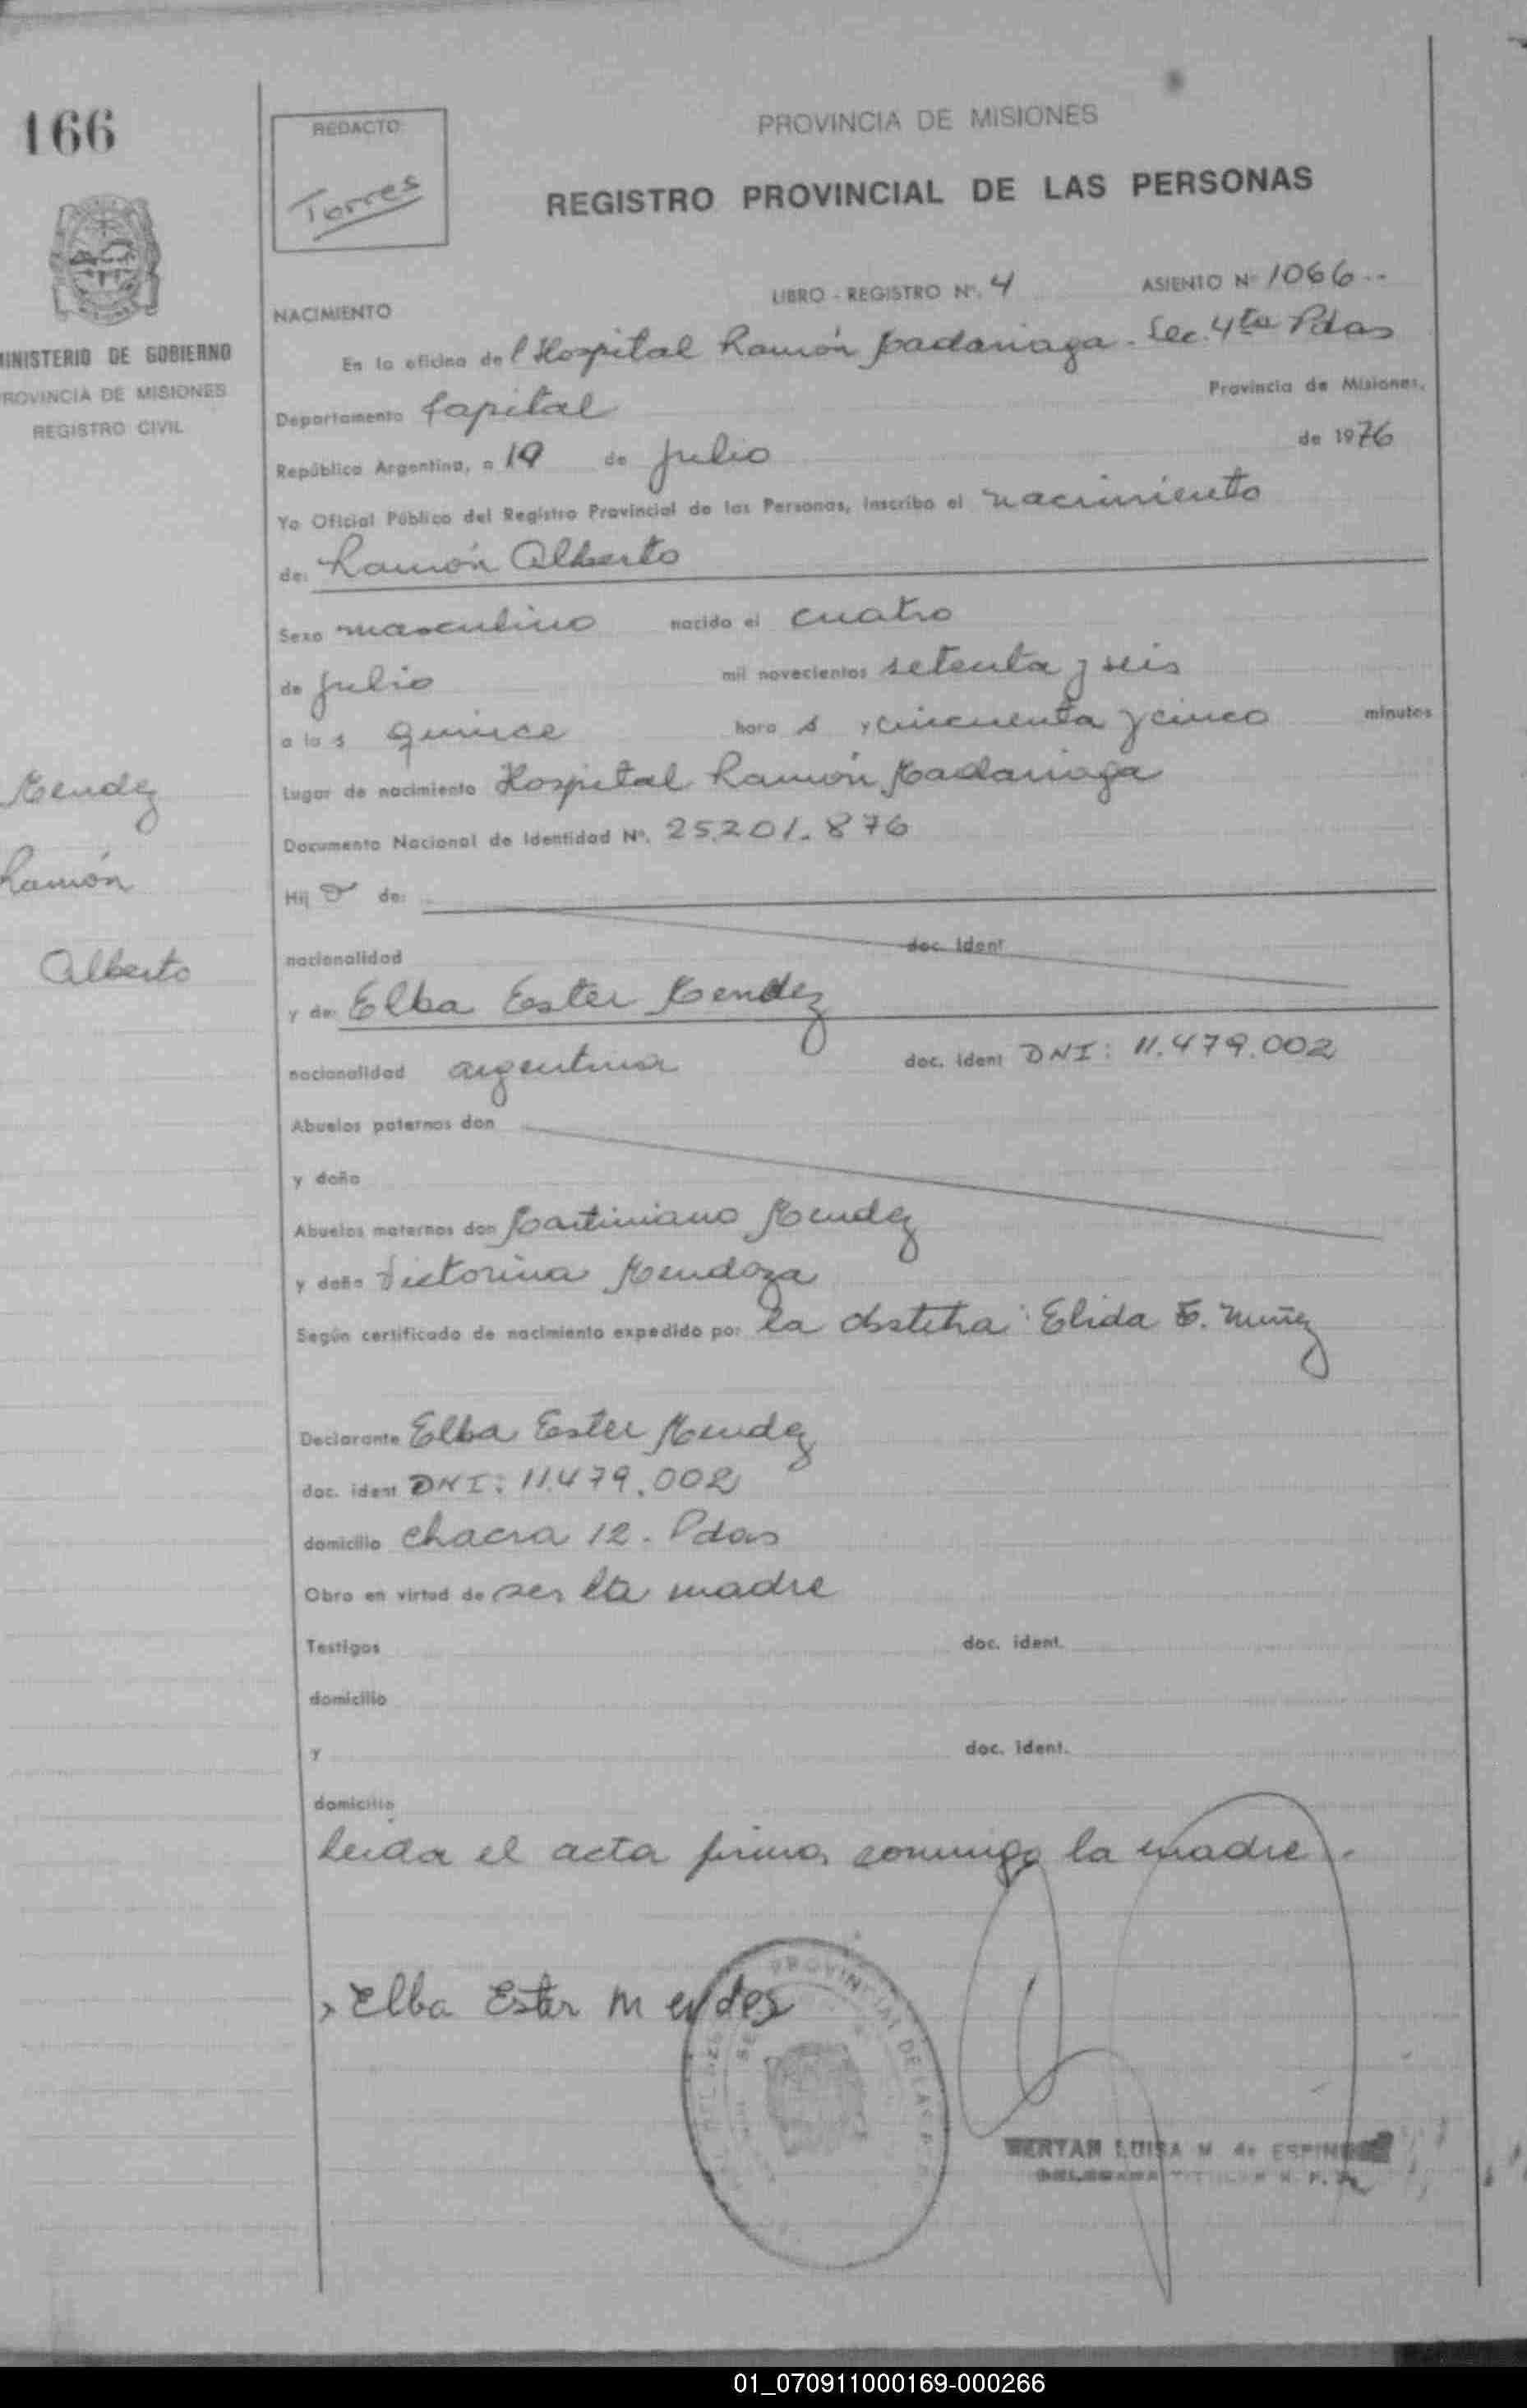 166
REDACTO
Torres
PROVINCIA DE MISIONES
REGISTRO PROVINCIAL DE LAS PERSONAS
LIBRO - REGISTRO Nº. 4 ASIENTO Nº 1066
NACIMIENTO
MINISTERIO DE GOBIERNO
PROVINCIA DE MISIONES
REGISTRO CIVIL
En la oficina del Hospital Ramón Madariaga - Sec. 4ta Pdas
Departamento Capital Provincia de Misiones,
República Argentina, a 19 de Julio de 1976
Yo Oficial Público del Registro Provincial de las Personas, inscribo el nacimiento
de: Ramón Alberto
Sexo masculino nacido el cuatro
de Julio mil novecientos setenta y seis
a las quince hora s y cincuenta y cinco minutos
Mendez
Lugar de nacimiento Hospital Ramón Madariaga
Documento Nacional de Identidad Nº. 25.201.876
Ramón
Hij o de:
Alberto
nacionalidad doc. ident
y de: Elba Ester Mendez
nacionalidad argentina doc. ident DNI: 11.479.002
Abuelos paternos don
y doña
Abuelos maternos don Martiniano Mendez
y doña Victorina Mendoza
Según certificado de nacimiento expedido por la obstetra: Elida E. Muñiz
Declarante Elba Ester Mendez
doc. ident DNI: 11.479.002
domicilio Chacra 12 - Pdas
Obra en virtud de ser la madre
Testigos doc. ident.
domicilio
y doc. ident.
domicilio
Leida el acta firma conmigo la madre.
Elba Ester Mendes
PROVINCIAL DE LAS P
LUISA M. de
01_070911000169-000266